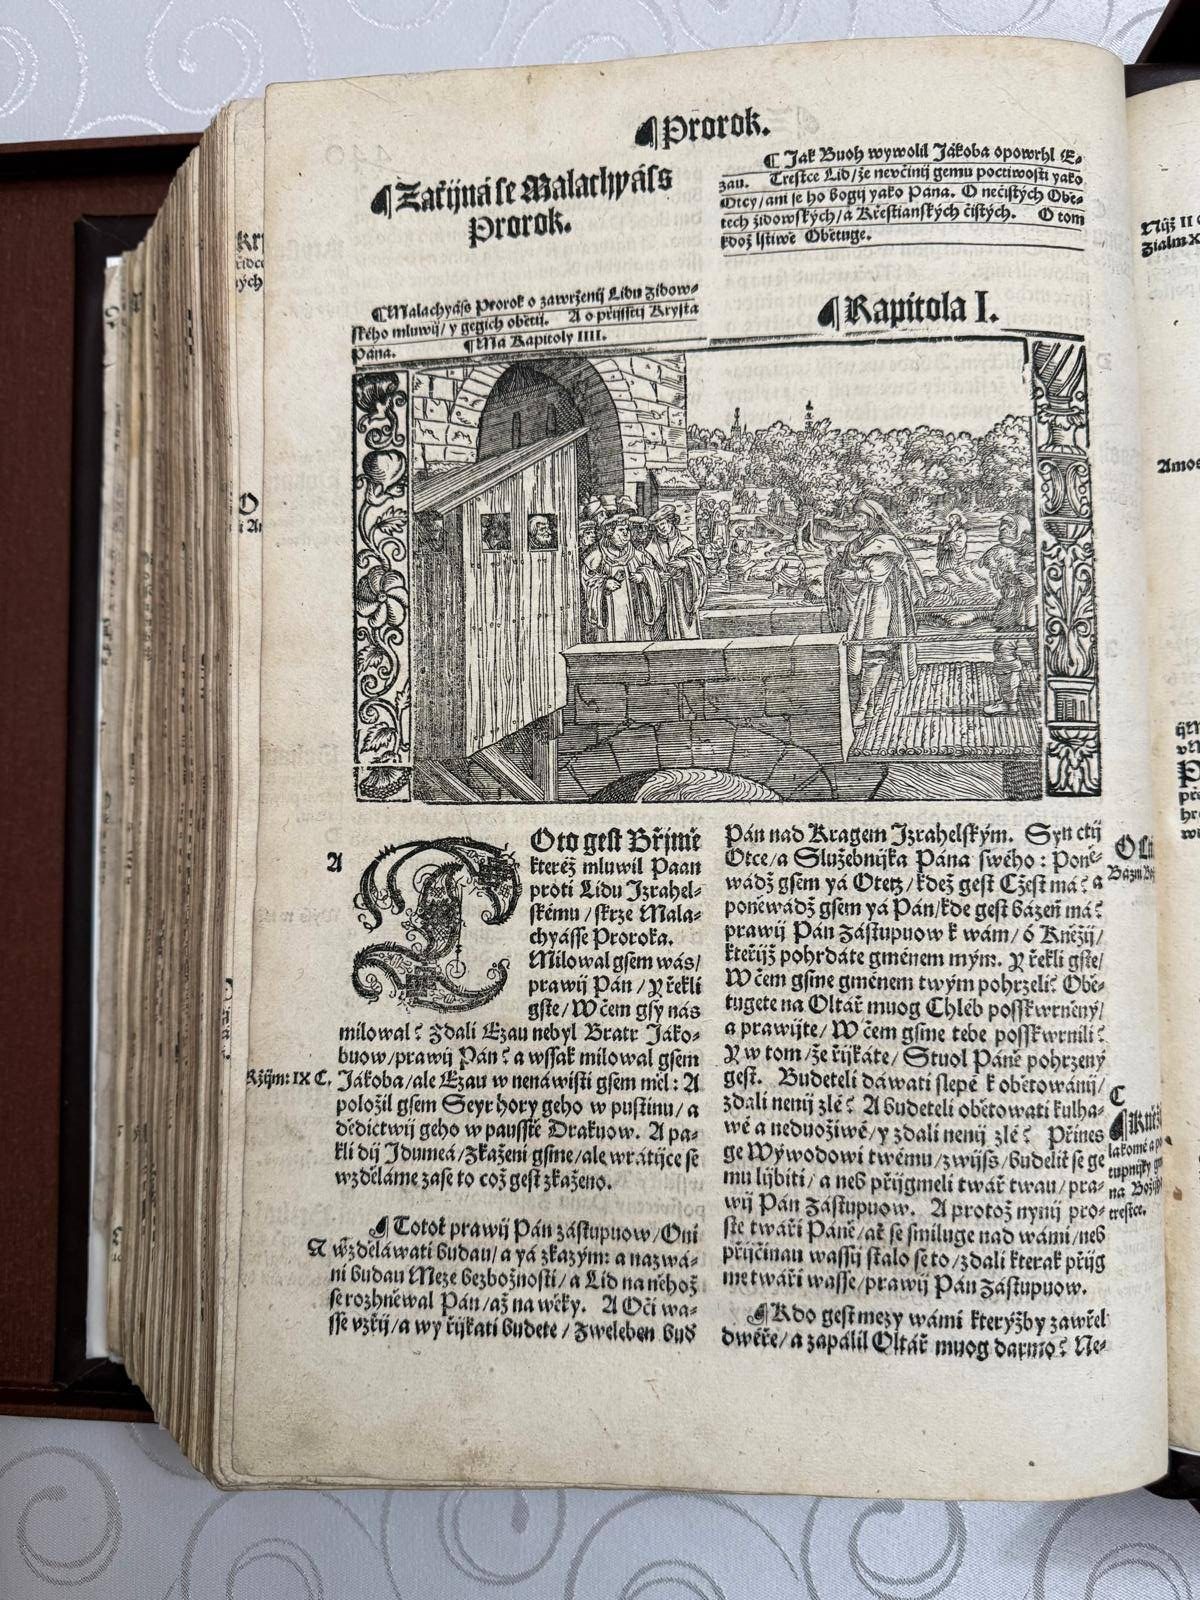 Prorok.
Začijná se Malachyáss
Prorok.
Malachyáss Prorok o zawrženij Lidu židow-
ského mluwij/ y gegich obětij. A o přijsstij Krysta
Pána. Má Kapitoly IIII.
Jak Buoh wywolil Jákoba opowrhl E-
zau. Tresce Lid/ že nevčinij gemu poctiwosti yako
Otcy/ ani se ho bogij yako Pána. O nečistých Obě-
tech židowských/ a Křestianských čistých. O tom
kdož lstiwě Obětuge.
Kapitola I.
A
TOto gest Břijmě
kteréž mluwil Paan
proti Lidu Jzrahel-
skému/ skrze Mala-
chyásse Proroka.
Milowal gsem wás/
prawij Pán/ Y řekli
gste/ W čem gsy nás
milowal? Zdali Ezau nebyl Bratr Jáko-
buow/ prawij Pán? a wssak milowal gsem
Ržijm: IX C.
Jákoba/ ale Ezau w nenáwisti gsem měl: A
položil gsem Seyr hory geho w pustinu/ a
dědictwij geho w pausstě Drakuow. A pa-
kli dij Jdumea/ Zkaženi gsme/ ale wrátijce se
wzděláme zase to což gest zkaženo.
Totoť prawij Pán zástupuow/ Oni
wzděláwati budau/ a yá zkazým: a nazwá-
ni budau Meze bezbožnosti/ a Lid na něhož
se rozhněwal Pán/ až na wěky. A Oči wa-
sse vzřij/ a wy řijkati budete/ Zweleben buď
Pán nad Kragem Jzrahelským. Syn ctij
Otce/ a Služebnijk a Pána swého: Poně-
wádž gsem yá Otetz/ kdež gest Cžest má? a
poněwádž gsem yá Pán/ kde gest bázeň má?
prawij Pán Zástupuow k wám/ ó Kněžij/
kteřijž pohrdáte gménem mým. Y řekli gste/
W čem gsme gménem twým pohrzeli? Obě-
tugete na Oltář muog Chléb possskwrněný/
a prawijte/ W čem gsme tebe possskwrnili?
Y w tom/ že řijkáte/ Stuol Páně pohrzený
gest. Budeteli dáwati slepé k obětowánij/
zdali nenij zlé? A budeteli obětowati kulha-
wé a neduožiwé/ y zdali nenij zlé? Přines
ge Wýwodowi twému/ zwijss/ budeliť se ge
mu lijbiti/ a neb přijgmeli twář twau/ pra-
wij Pán Zástupuow. A protož nynij pro-
ste twáři Páně/ ať se smiluge nad wámi/ neb
přijčinau wassij stalo se to/ zdali kterak přijg
me twáři wasse/ prawij Pán Zástupuow.
Kdo gest mezy wámi kterýžby zawřel
dwéře/ a zapálil Oltář muog darmo? Ne-
C
lakomé a
na
tresce.
Amos